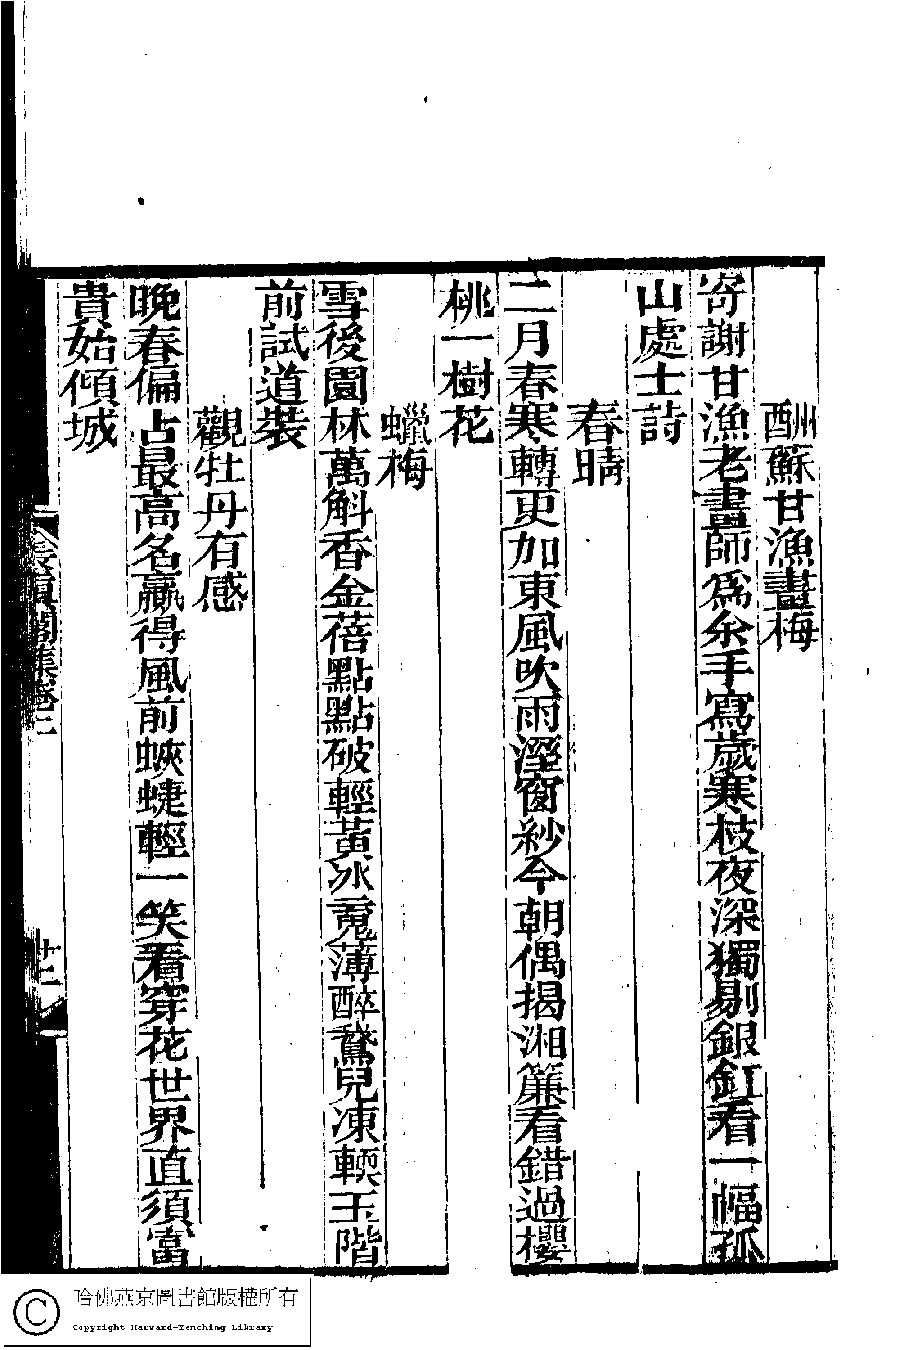 酬蘇甘漁畫梅
寄謝甘漁老畫師爲余手寫歲寒枝夜深獨剔銀釭看一幅孤
山處士詩
春晴
二月春寒轉更加東風吹雨溼窗紗今朝偶揭湘簾看錯過櫻
桃一樹花
蠟梅
雪後園林萬斛香金蓓點點破輕黃冰霓薄醉鵞兒凍輭玉階
前試道裝
觀牡丹有感
晚春偏占最高名贏得風前蛺蜨輕一笑看穿花世界直須富
貴始傾城
長真閣集卷二
十二
哈佛燕京圖書館版權所有
Copyright Harvard-Yenching Library